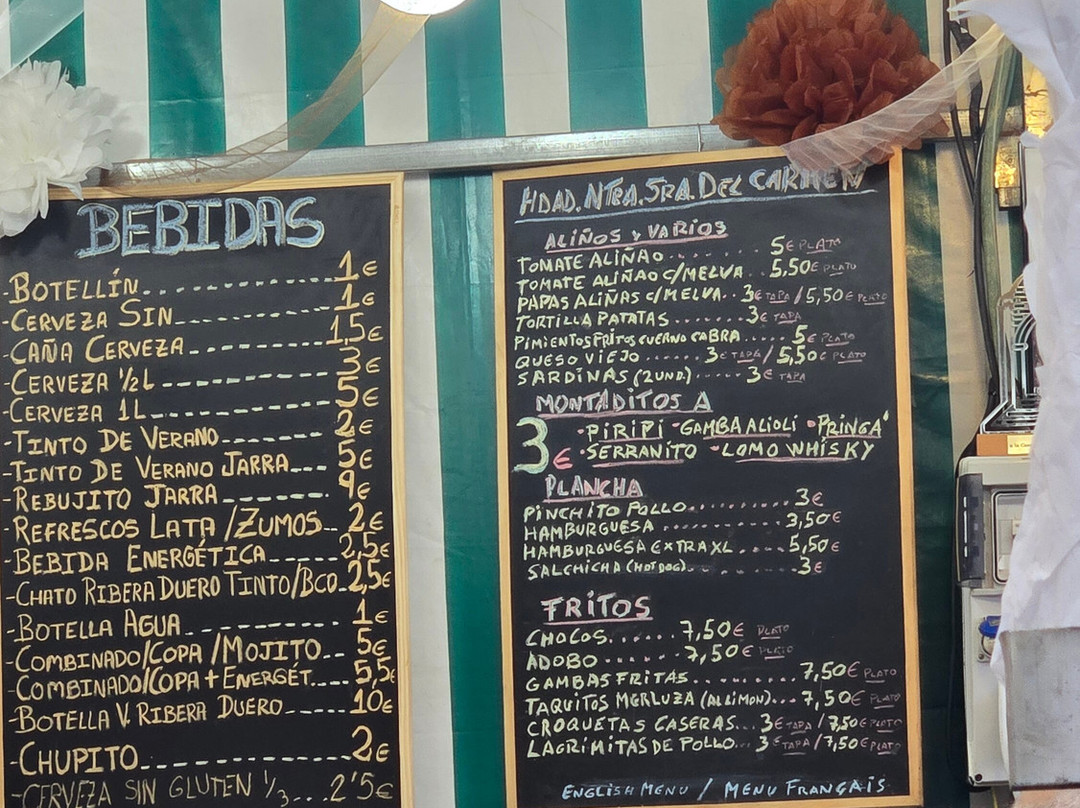 BEBIDAS
-BOTELLÍN 1€
-CERVEZA SIN 1€
-CAÑA CERVEZA 1,5€
-CERVEZA ½ L 3€
-CERVEZA 1L 5€
-TINTO DE VERANO 2€
-TINTO DE VERANO JARRA 5€
-REBUJITO JARRA 9€
-REFRESCOS LATA/ZUMOS 2€
-BEBIDA ENERGÉTICA 2,5€
-CHATO RIBERA DUERO TINTO/BCO 2,5€
-BOTELLA AGUA 1€
-COMBINADO/COPA/MOJITO 5€
-COMBINADO/COPA+ENERGÉT. 5,5€
-BOTELLA V. RIBERA DUERO 10€
-CHUPITO 2€
-CERVEZA SIN GLUTEN 1/3... 2'5€
HDAD. NTRA. SRA. DEL CARMEN
ALIÑOS Y VARIOS
TOMATE ALIÑAO 5€ PLATO
TOMATE ALIÑAO C/MELVA 5,50€ PLATO
PAPAS ALIÑAS C/MELVA 3€ TAPA / 5,50€ PLATO
TORTILLA PATATAS 3€ TAPA
PIMIENTOS FRITOS CUERNO CABRA 5€ PLATO
QUESO VIEJO 3€ TAPA / 5,50€ PLATO
SARDINAS (2 UND.) 3€ TAPA
MONTADITOS A
3€ ·PIRIPI ·GAMBA ALIOLI ·PRINGÁ
·SERRANITO ·LOMO WHÍSKY
PLANCHA
PINCHITO POLLO 3€
HAMBURGUESA 3,50€
HAMBURGUESA EXTRA XL 5,50€
SALCHICHA (HOT DOG) 3€
FRITOS
CHOCOS 7,50€ PLATO
ADOBO 7,50€ PLATO
GAMBAS FRITAS 7,50€ PLATO
TAQUITOS MERLUZA (AL LIMON) 7,50€ PLATO
CROQUETAS CASERAS 3€ TAPA / 7,50€ PLATO
LAGRIMITAS DE POLLO 3€ TAPA / 7,50€ PLATO
ENGLISH MENU / MENU FRANÇAIS